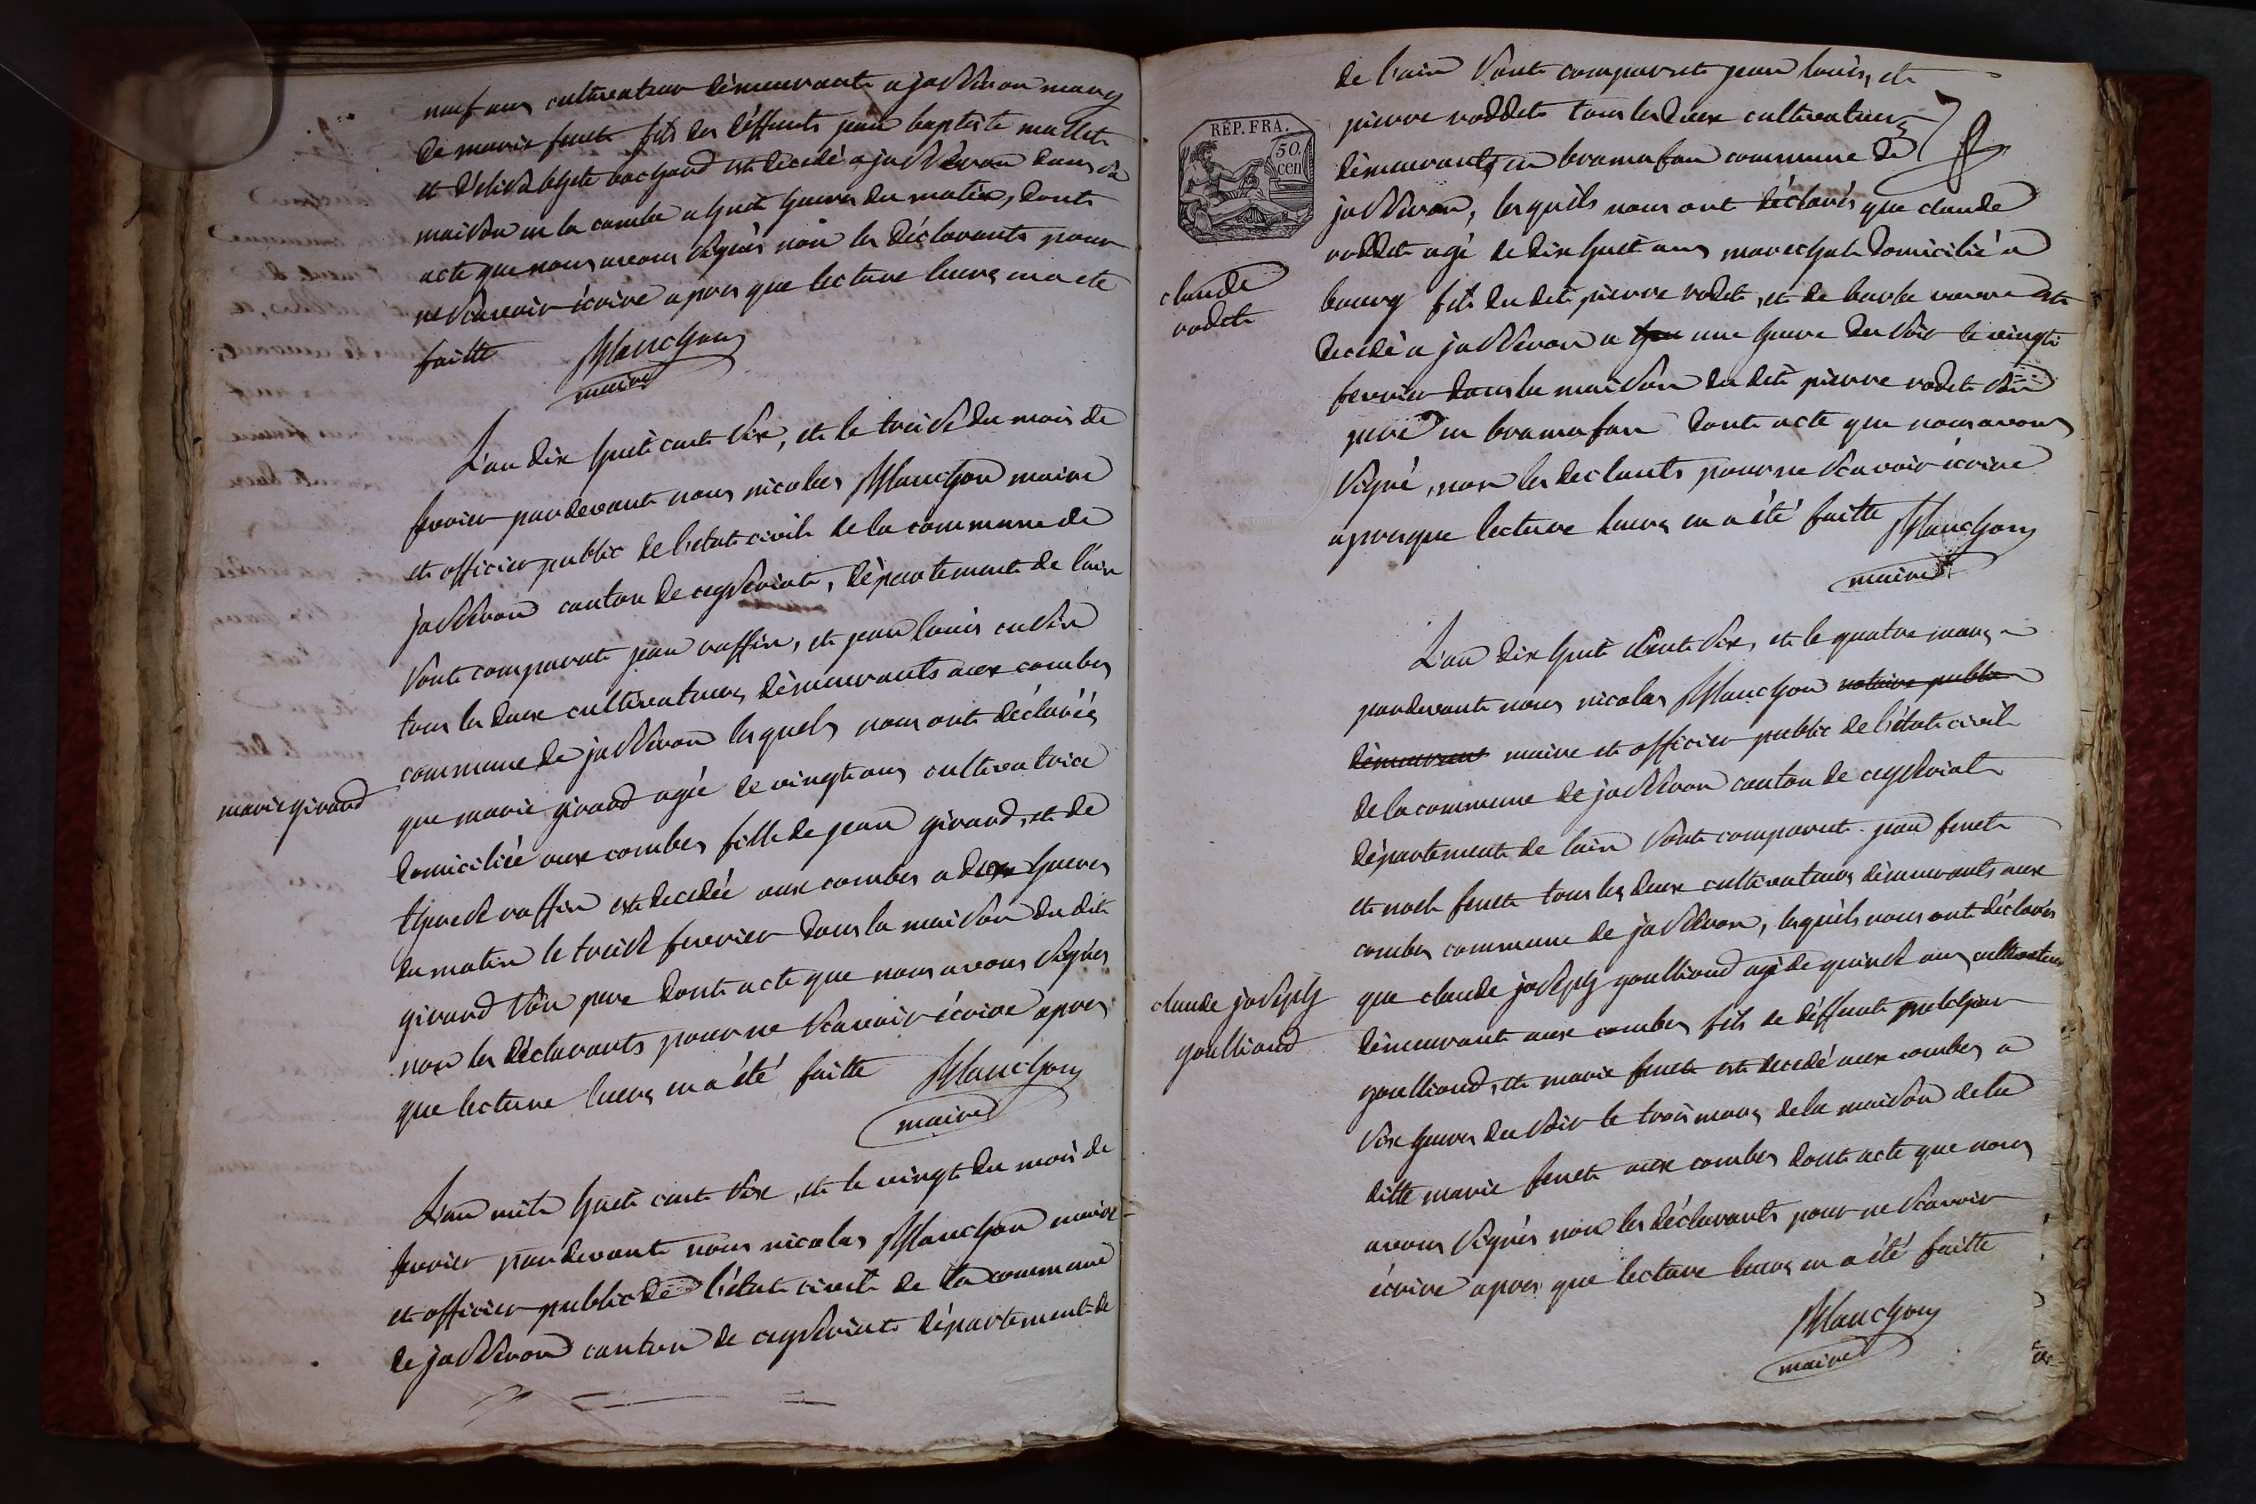 neuf ans cultivateur demeurant a jasseron mary
de marie feuet fils des deffunts jean baptiste mallet
et d'elisabhete bochard est decedé a jasseron dans sa
maison en la combe a huit heures du matin, dont
acte que nous avons signés non les déclarants pour
ne scavoir écrire apres que lecture leurs en a ete
faitte Manchon
maire
L'an dix huit cent six, et le treise du mois de
fevrier pardevant nous nicolas Manchon maire
et officier public de l'etat civil de la commune de
jasseron canton de ceyseriat, département de l'ain
sont comparut jean raffin, et jean louis cusin
tous les deux cultivateurs demeurants aux combes
commune de jasseron lesquels nous ont déclarés
marie girard
que marie girard agée de vingt ans cultivatrice
domiciliée aux combes fille de jean girard, et de
therese raffin est decedée aux combes a deux heures
du matin le treise fevrier dans la maison du dit
girard son pere dont acte que nous avons signés
non les déclarants pour ne scavoir écrire apres
que lecture leurs en a été faitte Manchon
maire
L'an mil huit cent six, et le vingt du mois de
fevrier pardevant nous nicolas Manchon maire
et officier public de l'état civil de la commune
de jasseron canton de ceyseriat département de
RÉP. FRA.
50
cen
de l'ain sont comparut jean louis, et
pierre roddet tous les deux cultivateurs
demeurants en bramafan commune de
jasseron, lesquels nous ont déclarés que claude
claude
rodet
roddet agé de dix huit ans marechal domicilié a
bourg fils du dit pierre rodet, et de barbe est
decedé a jasseron a heu une heure du soir le vingt
fevrier dans la maison du dit pierre rodet son
pere en bramafan dont acte que nous avons
signé, non les declants pour ne scavoir écrire
apres que lecture leurs en a été faitte Manchon
maire
L'an dix huit cent six, et le quatre mars
pardevant nous nicolas Manchon notaire public
demeurant maire et officier public de l'état civil
de la commune de jasseron canton de ceyseriat
département de lain sont comparut jean feuet
et noel feuet tous les deux cultivateurs demeurants aux
combes commune de jasseron, lesquels nous ont déclarés
claude joseph
goulliaud
que claude joseph goulliaud agé de quinse ans cultivateur
demeurant aux combes fils de deffunt melchior
goulliaud, et marie feuet est decedé aux combes a
six heures du soir le trois mars de la maison de la
ditte marie feuet aux combes dont acte que nous
avons signés non les déclarants pour ne scavoir
écrire apres que lecture leurs en a été faitte
Manchon
maire